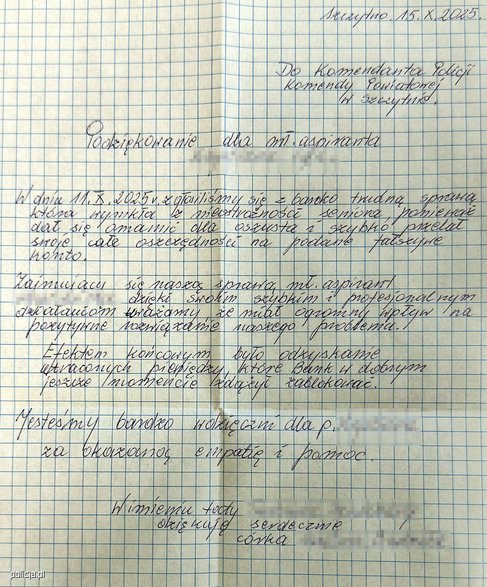 Szczytno. 15.X.2025.
Do Komendanta Policji
Komendy Powiatowej
w Szczytnie.
Podziękowanie dla mł. aspiranta
W dniu 11.X.2025r. zgłosiliśmy się z bardzo trudną sprawą
która wynikła z nieostrożności seniora, ponieważ
dał się omamić dla oszusta i szybko przelał
swoje całe oszczędności na podane fałszywe
konto.
Zajmujący się naszą sprawą mł. aspirant
dzięki swoim szybkim i profesjonalnym
działaniom uważamy, że miał ogromny wpływ na
pozytywne rozwiązanie naszego problemu.
Efektem końcowym było odzyskanie
utraconych pieniędzy, które Bank w dobrym
jeszcze momencie zdążył zablokować.
Jesteśmy bardzo wdzięczni dla p.
za okazaną empatię i pomoc.
W imieniu taty
dziękują serdecznie
córka
policja.pl